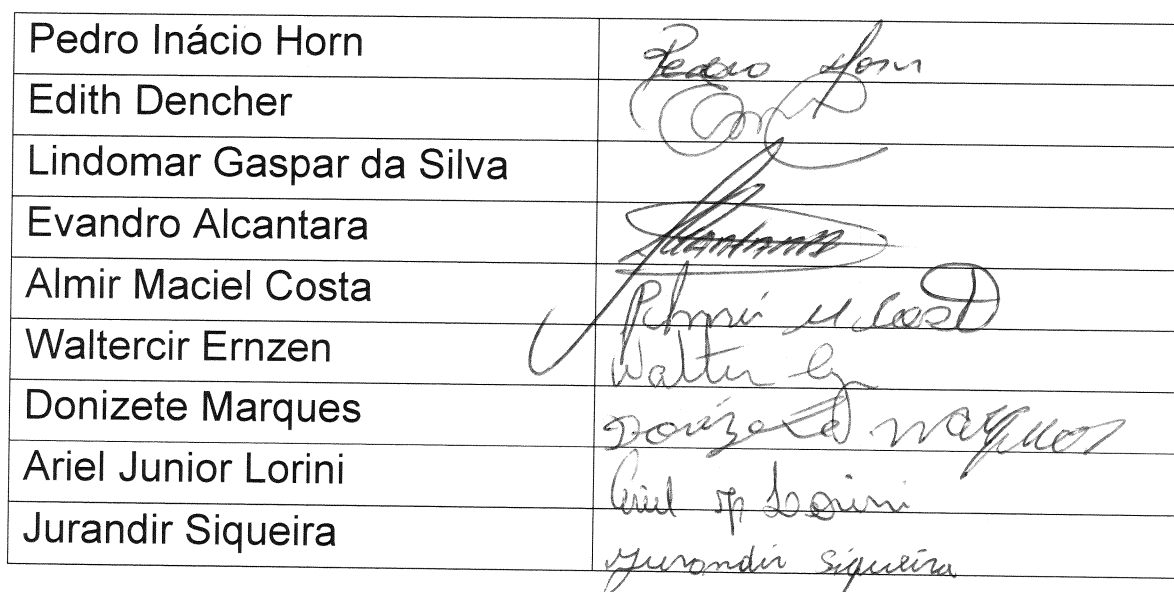 Pedro Inácio Horn Pedro Horn
Edith Dencher
Lindomar Gaspar da Silva
Evandro Alcantara Alcantara
Almir Maciel Costa Almir M Costa
Waltercir Ernzen Walter
Donizete Marques Donizete Marques
Ariel Junior Lorini Ariel Jr Lorini
Jurandir Siqueira Jurandir Siqueira